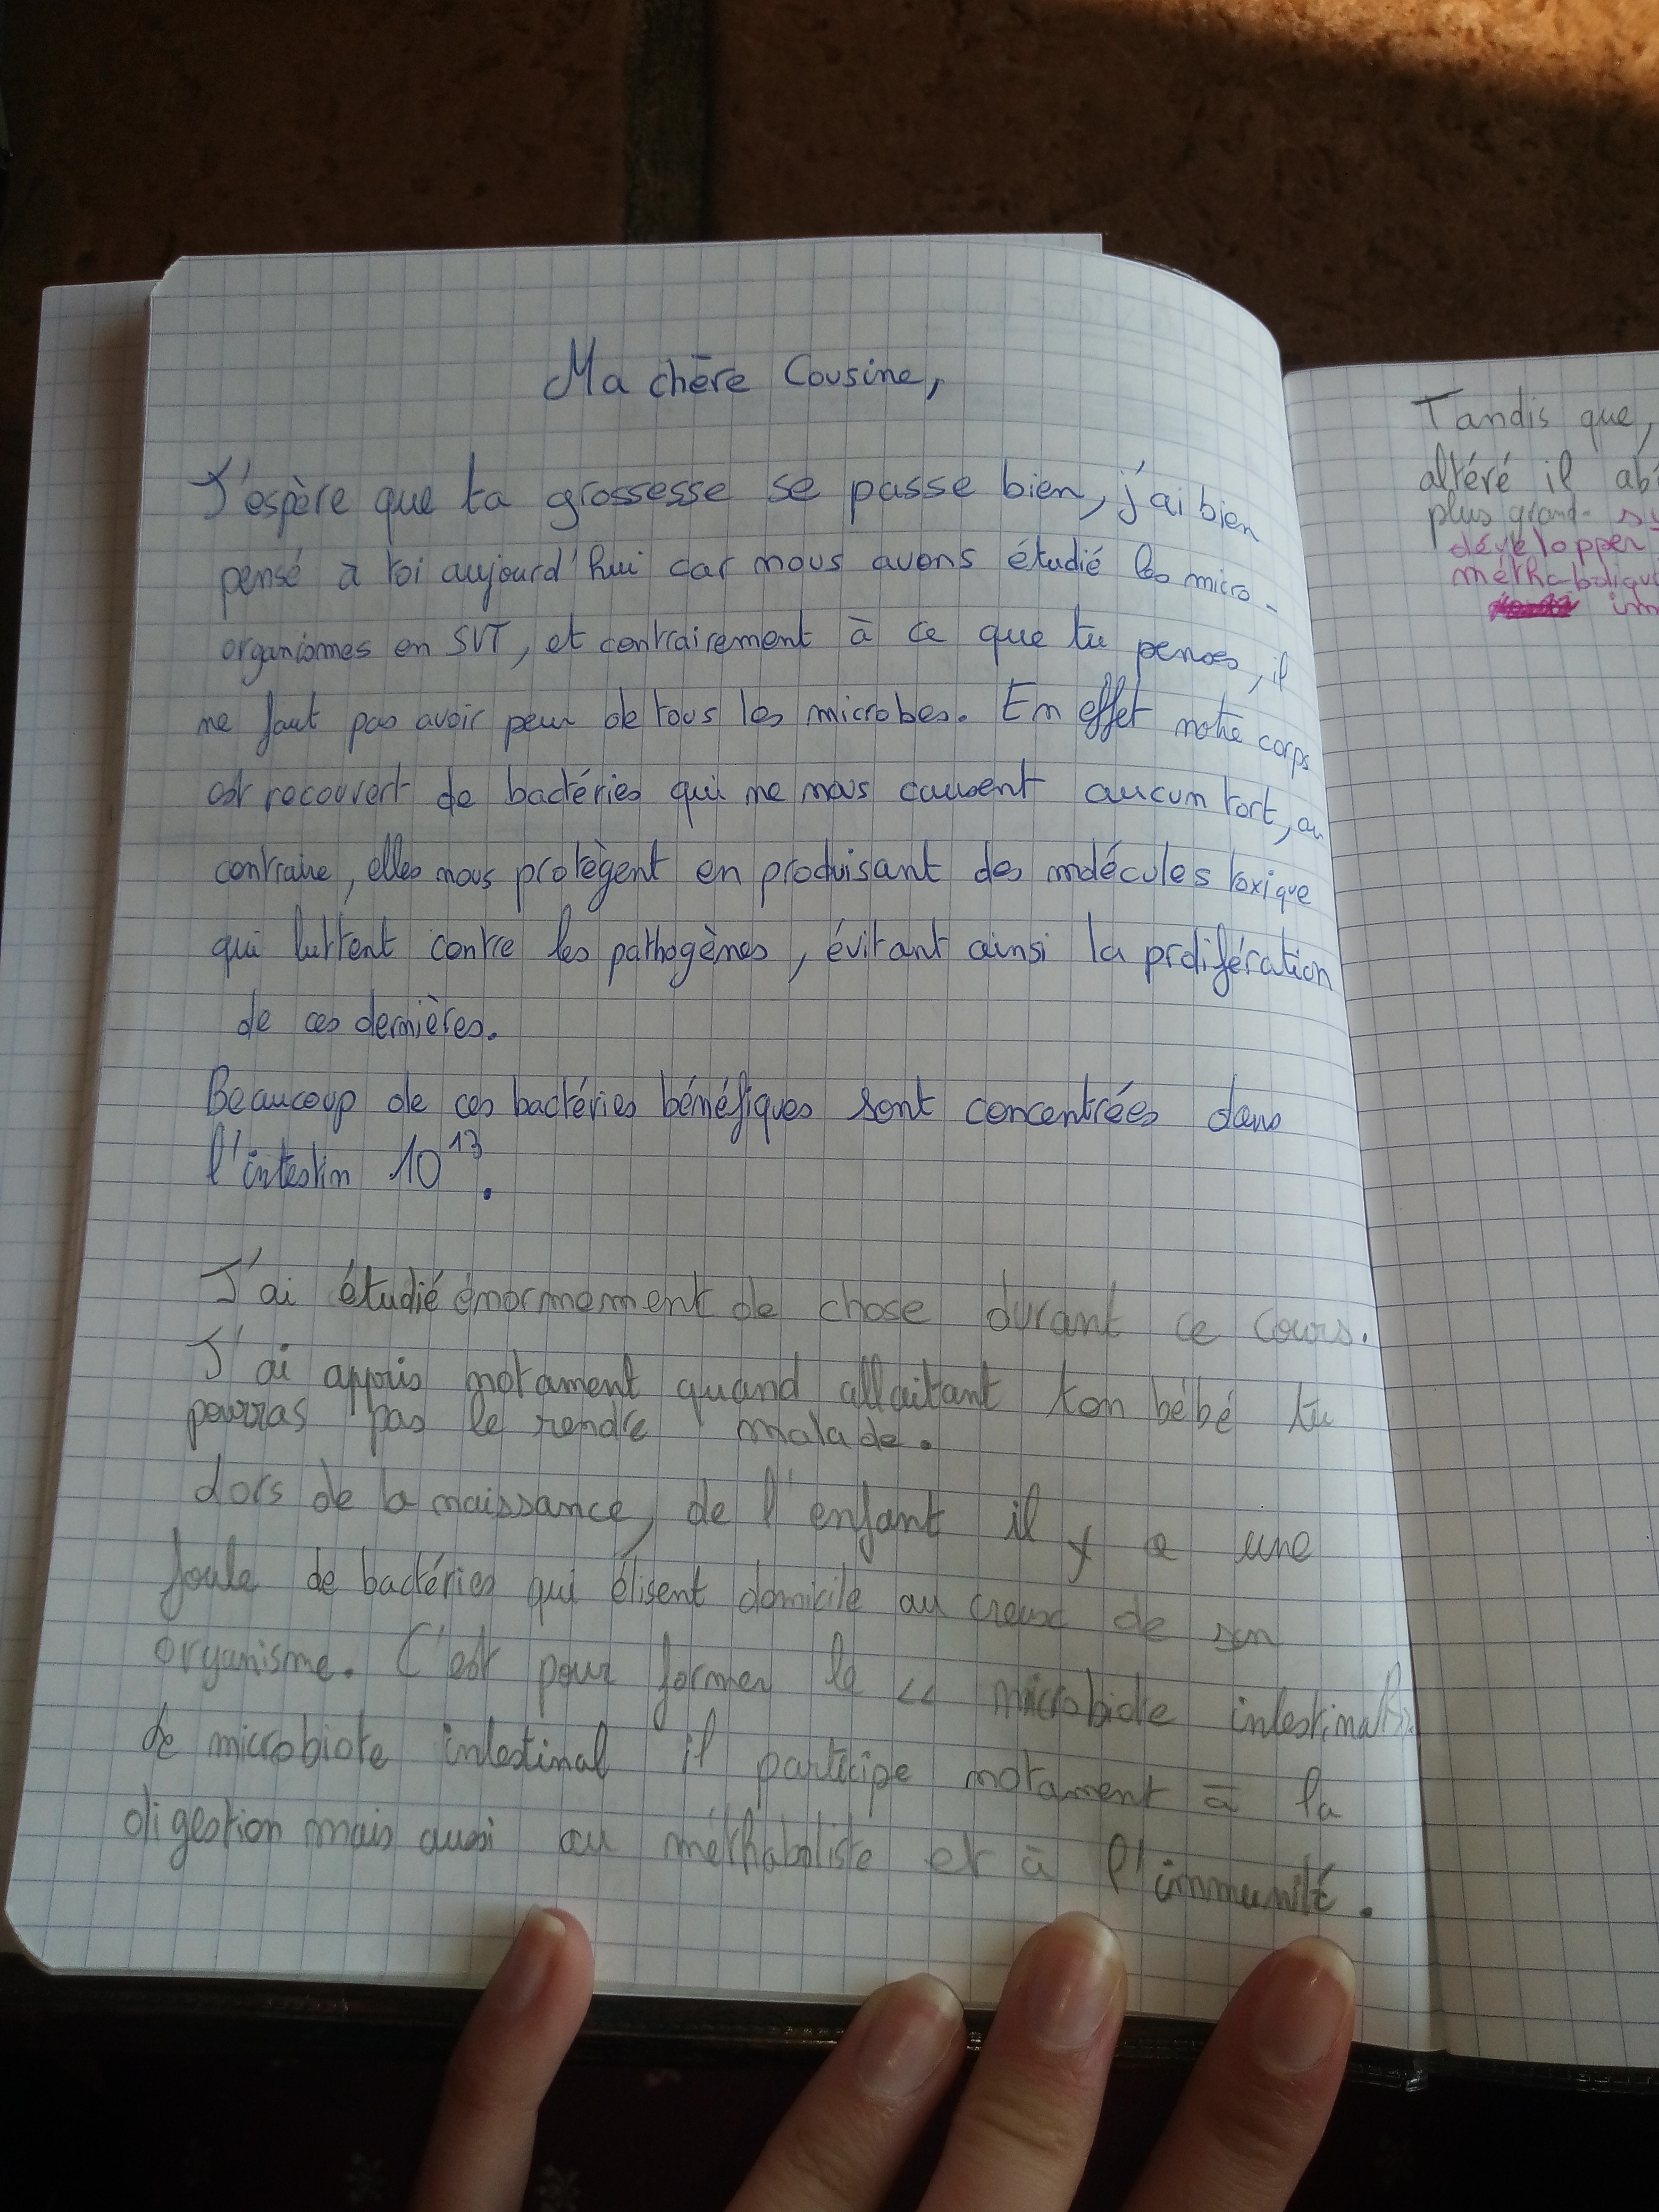 Ma chère Cousine,
J'espère que ta grossesse se passe bien, j'ai bien
pensé à toi aujourd'hui car nous avons étudié les micro-
organismes en SVT, et contrairement à ce que tu penses, il
ne faut pas avoir peur de tous les microbes. En effet notre corps
est recouvert de bactéries qui ne nous causent aucun tort, au
contraire, elles nous protègent en produisant des molécules toxique
qui luttent contre les pathogènes, évitant ainsi la prolifération
de ces dernières.
Beaucoup de ces bactéries bénéfiques sont concentrées dans
l'intestin 10¹³.
J'ai étudié énormement de chose durant ce cours.
J'ai appris notament quand allaitant ton bébé tu
pourras pas le rendre malade.
Lors de la naissance, de l'enfant il y a une
foule de bactéries qui élisent domicile au creux de son
organisme. C'est pour former le << microbiote intestinal>>.
Le microbiote intestinal il participe notament à la
digestion mais aussi au méthaboliste et à l'immunité.
Tandis que,
altéré il
plus grand
développer
méthabolique